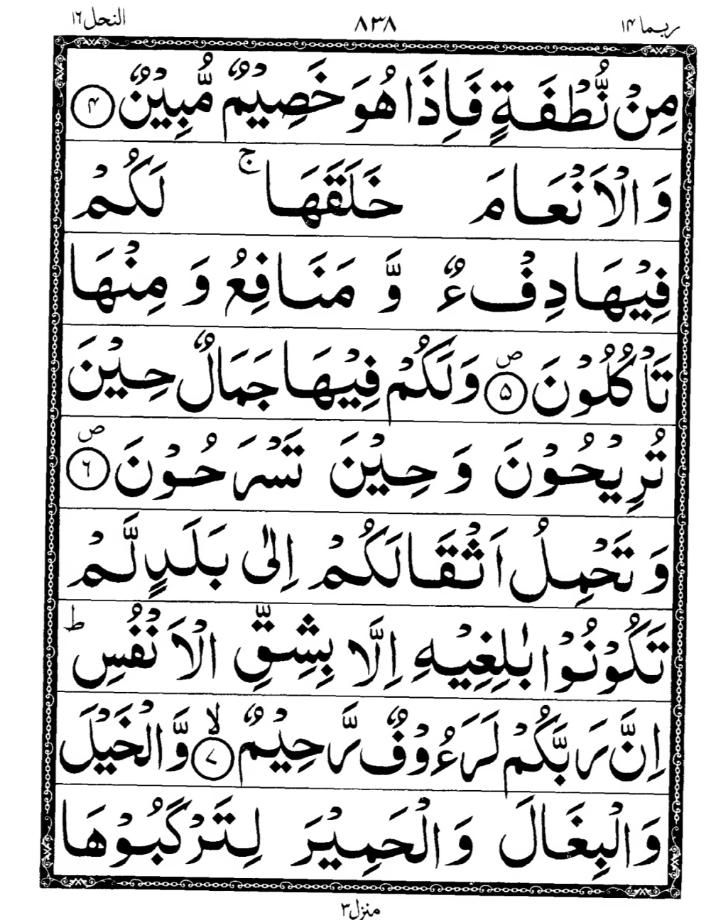 ربما ۱۴ ۸۳۸ النحل ۱۶
مِنْ نُّطْفَةٍ فَاِذَا هُوَ خَصِيْمٌ مُّبِيْنٌ ۴
وَالْاَنْعَامَ خَلَقَهَا ۚ لَكُمْ
فِيْهَا دِفْءٌ وَّ مَنَافِعُ وَ مِنْهَا
تَاْكُلُوْنَ ۵ ص وَلَكُمْ فِيْهَا جَمَالٌ حِيْنَ
تُرِيْحُوْنَ وَ حِيْنَ تَسْرَحُوْنَ ۶ ص
وَ تَحْمِلُ اَثْقَالَكُمْ اِلٰى بَلَدٍ لَّمْ
تَكُوْنُوْا بٰلِغِيْهِ اِلَّا بِشِقِّ الْاَنْفُسِ ؕ
اِنَّ رَبَّكُمْ لَرَءُوْفٌ رَّحِيْمٌ ۷ ۙ وَّالْخَيْلَ
وَالْبِغَالَ وَالْحَمِيْرَ لِتَرْكَبُوْهَا
منزل ۳